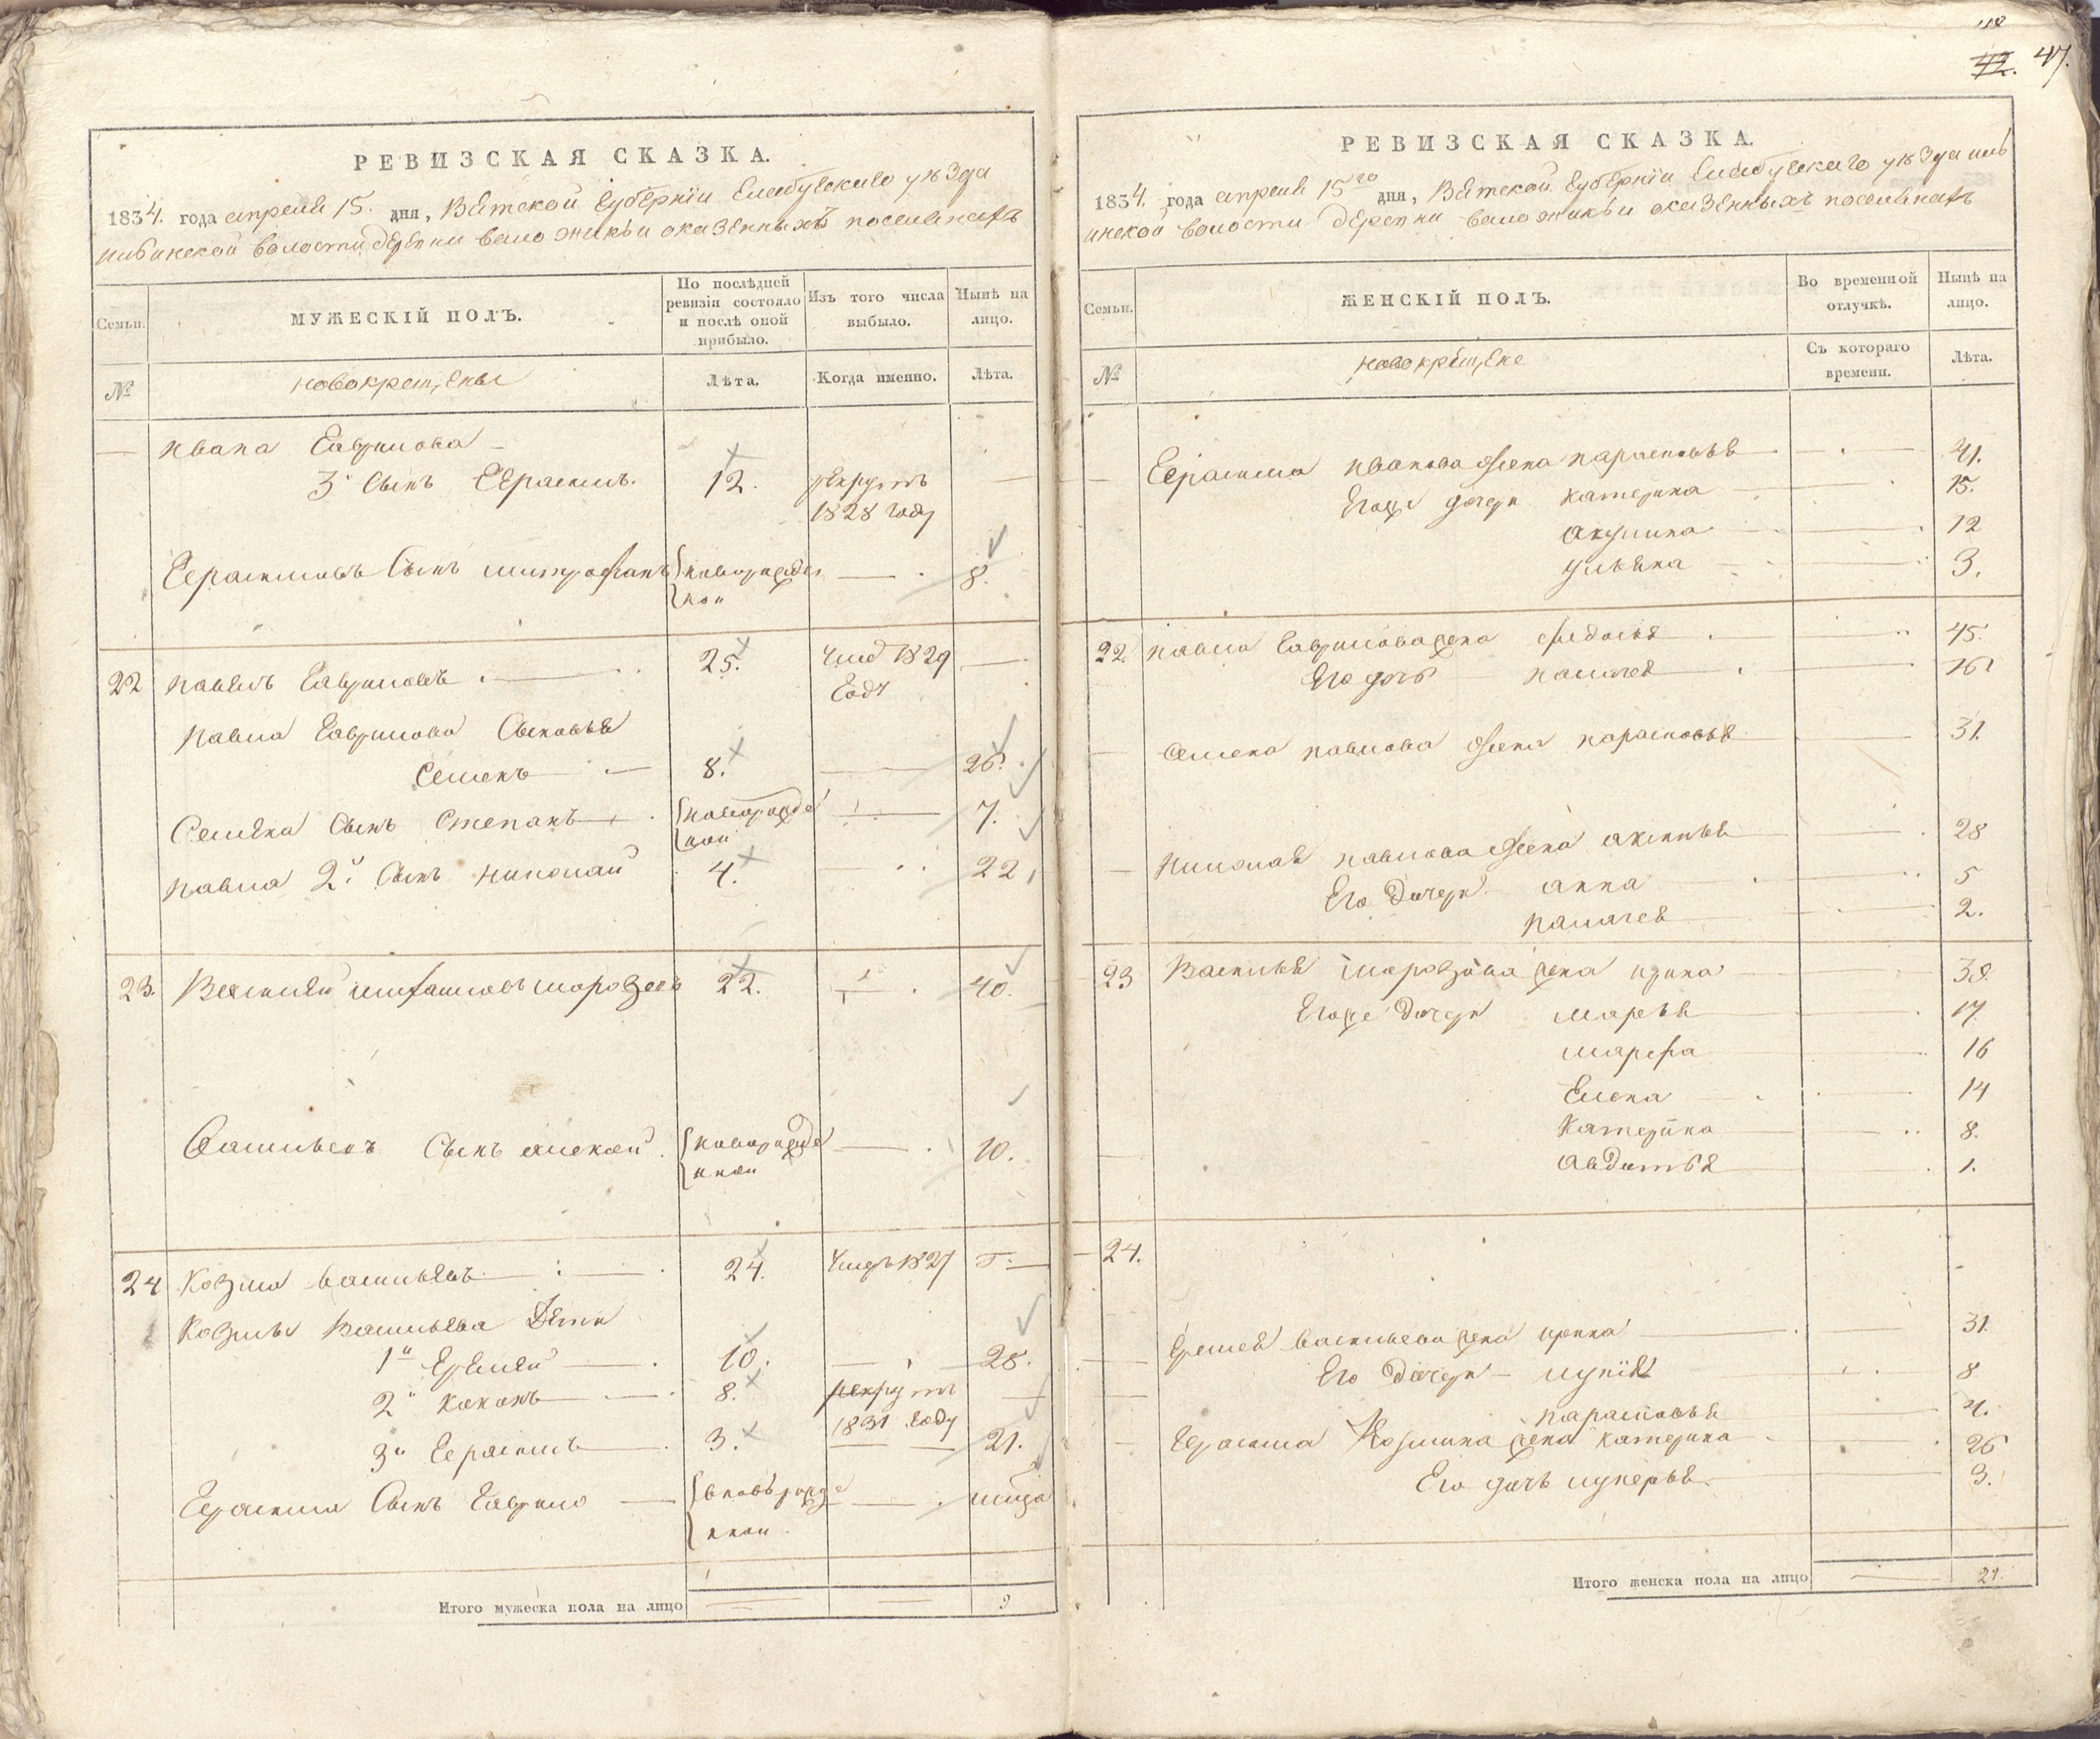 48
42. 47.
РЕВИЗСКАЯ СКАЗКА.
1834. года апреля 15. дня, Вятской Губернїи Елабускаго уѣзда
волости деревни оказенныхъ поселянахъ
Семьи.
МУЖЕСКІЙ ПОЛЪ.
По послѣдней ревизіи состояло и послѣ оной прибыло.
Изъ того числа выбыло.
Нынѣ на лицо.
№
новокрещены
Лѣта.
Когда именно.
Лѣта.
— Ивана Гаврилова —
3й Сынъ Герасимъ. 12. рекрутъ —
1828 году
Герасимовъ Сынъ митрофанъ новорожден — 8.
ной
22 павелъ Гавриловъ 25. умер 1829 —
Году
павла Гаврилова Сыновья
Семенъ — 8. — 26.
Семена Сынъ Степанъ новорожде — 7.
ной
павла 2й Сынъ николай 4. 22.
23. Василей морозовъ 22. — 40.
Васильевъ Сынъ алексей новорожде — 10.
нной
24 Козма васильевъ 24. умеръ 1827 Г. —
Козмы Васильева Дети
1й Еремей — 10. — 28.
2й — 8. рекрутъ —
1831 Году
3й Герасимъ — 3. — 21.
Герасима Сынъ Гаврило — вновьрожде —
нной
Итого мужеска пола на лицо — — 9
РЕВИЗСКАЯ СКАЗКА.
1834. года апреля 15го дня, Вятской Губернїи Елабускаго уѣзда
волости деревни оказенныхъ поселянахъ
Семьи.
ЖЕНСКІЙ ПОЛЪ.
Во временной отлучкѣ.
Нынѣ на лицо.
№
новокрещене
Съ котораго времени.
Лѣта.
— Герасима иванова жена парасковья — 41.
Егоже дочери катерина — 15.
акулина — 12
ульяна — 3.
22 павла Гаврилова жена федосья — 45.
Его дочь палагея — 16
— Семена павлова жена парасковья — 31.
— николая павлова жена аксинья — 28
Его Дочери анна — 5
палагея — 2.
23 Василья морозова жена ирина — 38.
Егоже Дочери марья — 17
марфа — 16
Елена — 14
Катерина — 8.
авдотья — 1.
24.
Еремея васильева жена ирина — 31
Его Дочери — — 8
парасковья — 4.
— Герасима Козмина жена катерина — 26
Его дочь лукерья — 3.
Итого женска пола на лицо — 21.